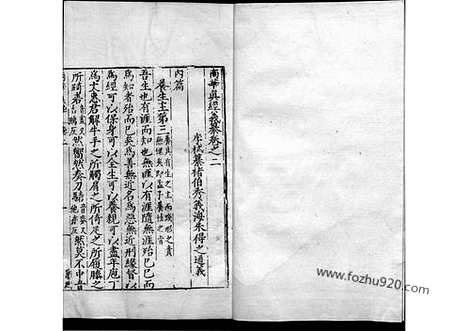 南華真經義纂卷之二
李栻纂褚伯秀義海朱得之通義
內篇
養生主第三
吾生也有涯而知也無涯以有涯隨無涯殆已已而
為知者殆而已矣為善無近名為惡無近刑緣督以
為經可以保身可以全生可以養親可以盡年庖丁
為文惠君解牛手之所觸肩之所倚足之所履膝之
所踦者然嚮然奏刀騞然莫不中音
www.fozhu920.com